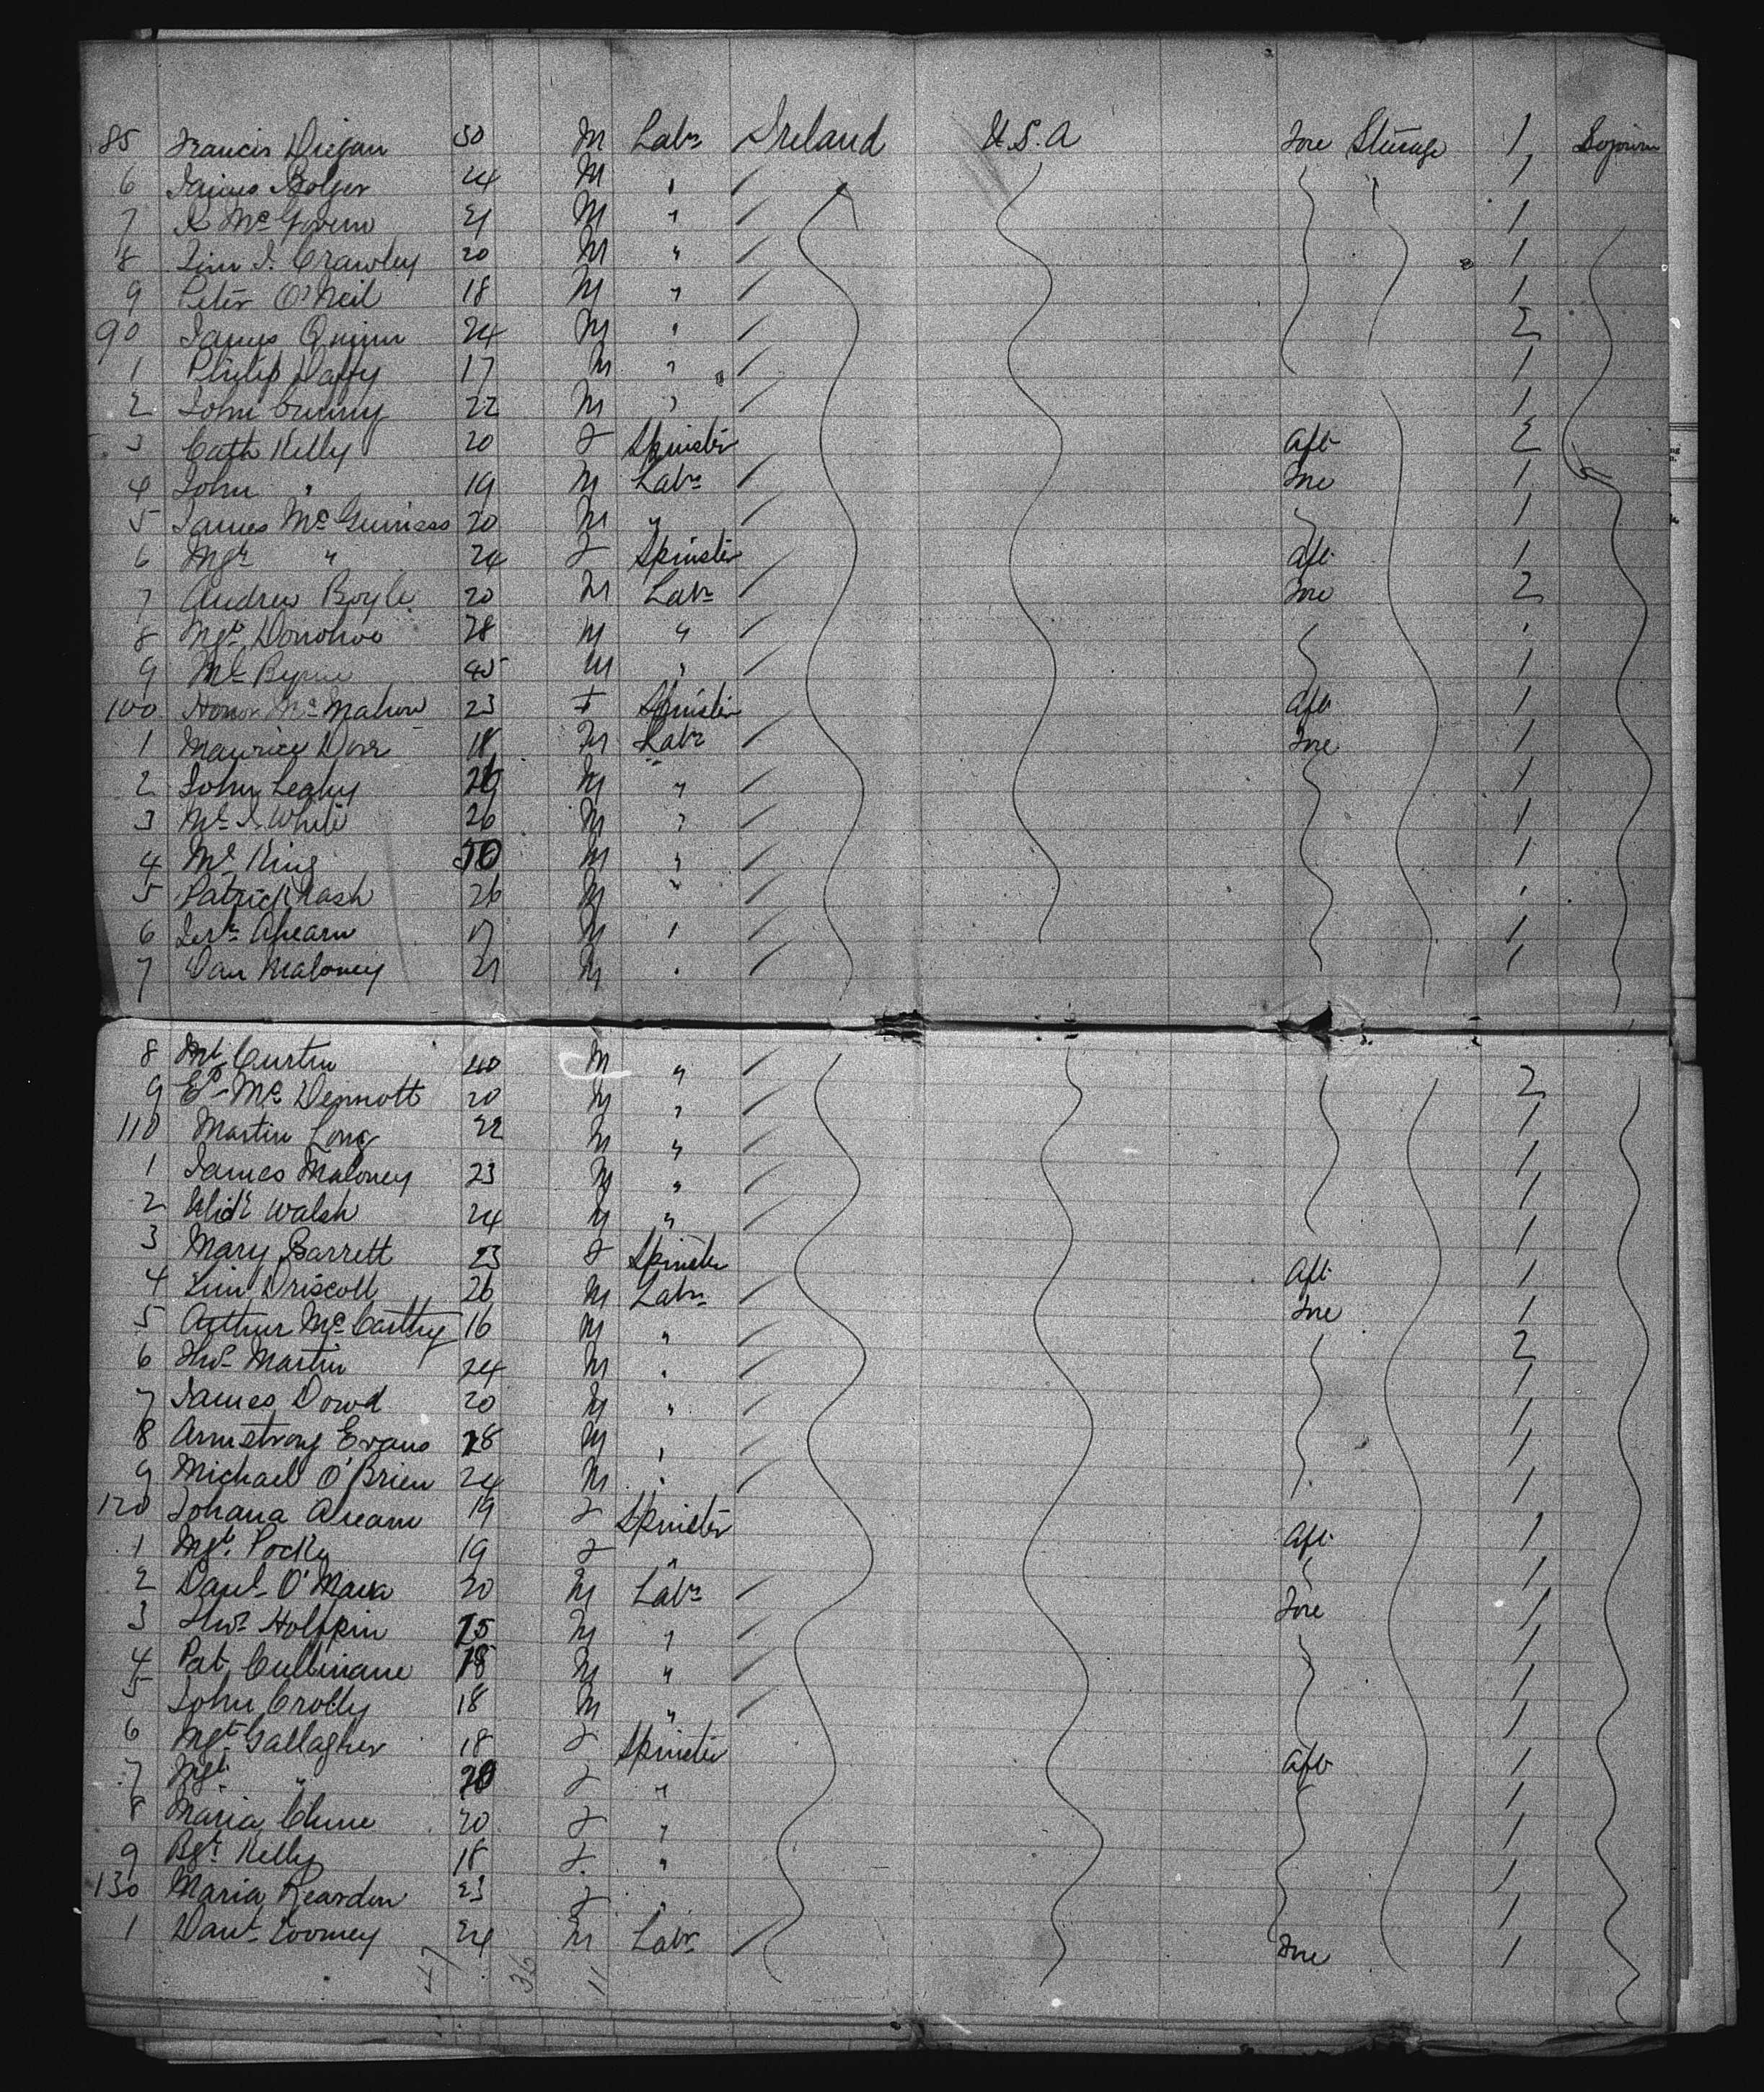 85 Francis Diegan 30 M Labr Ireland U.S.A Fore Steerage 1 Sojourn
6 James Bolger 24 M " 1
7 McGovern 21 M " 1
8 Jim J. Crawley 20 M " 1
9 Peter O'Neil 18 M " 1
90 James Quinn 24 M " 2
1 Philip Daffy 17 M " 1
2 John 22 M " 1
3 Cath Kelly 20 F Spinster Aft 2
4 John " 19 M Labr Fore 1
5 James Mc 20 M " 1
6 Mgt " 24 F Spinster Aft 1
7 Andrew Boyle 20 M Labr Fore 2
8 Mgt Donohoe 28 M " 1
9 Ml Byrne 45 M " 1
100 Honor McMahon 23 F Spinster Aft 1
1 Maurice Dorr 18 M Labr Fore 1
2 John Leahy M " 1
3 Ml J. White 26 M " 1
4 Ml King M " 1
5 Patrick Nash 26 M " 1
6 Jerh Ahearn 17 M " 1
7 Dan Maloney 21 M " 1
8 Ml Curtin 40 M " 2
9 Ed McDermott 20 M " 1
110 Martin Long 22 M " 1
1 James Maloney 23 M " 1
2 Walsh 24 M " 1
3 Mary Barrett 23 F Spinster Aft 1
4 Jim Driscoll 26 M Labr Fore 1
5 Arthur McCarthy 16 M " 2
6 Thos Martin 24 M " 1
7 James Dowd 20 M " 1
8 Armstrong Evans 28 M " 1
9 Michael O'Brien 24 M " 1
120 Johana Ahearn 19 F Spinster Aft 1
1 Mgt. 19 F " 1
2 Danl O'Mara 20 M Labr Fore 1
3 Thos 25 M " 1
4 Pat Cullinane 18 M " 1
5 John Crolly 18 M " 1
6 Mgt Gallagher 18 F Spinster Aft 1
7 Mgt " 20 F " 1
8 Maria Clune 20 F " 1
9 Bgt Kelly 18 F " 1
130 Maria Reardon 23 F " 1
1 Danl Toomey 24 M Labr Fore 1
47 36 11